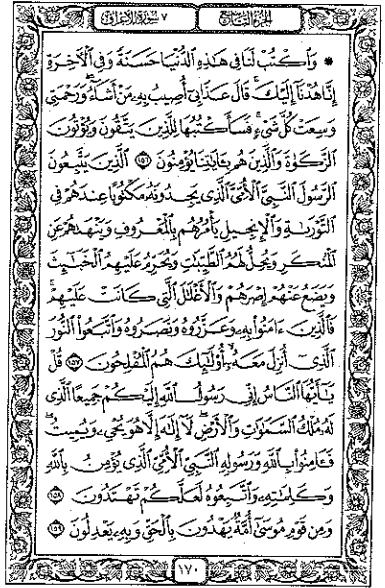 الجزء التاسع ٧ سورة الأعراف
۞ وَٱكْتُبْ لَنَا فِى هَٰذِهِ ٱلدُّنْيَا حَسَنَةً وَفِى ٱلْءَاخِرَةِ
إِنَّا هُدْنَآ إِلَيْكَ ۚ قَالَ عَذَابِىٓ أُصِيبُ بِهِۦ مَنْ أَشَآءُ ۖ وَرَحْمَتِى
وَسِعَتْ كُلَّ شَىْءٍ ۚ فَسَأَكْتُبُهَا لِلَّذِينَ يَتَّقُونَ وَيُؤْتُونَ
ٱلزَّكَوٰةَ وَٱلَّذِينَ هُم بِـَٔايَٰتِنَا يُؤْمِنُونَ ١٥٦ ٱلَّذِينَ يَتَّبِعُونَ
ٱلرَّسُولَ ٱلنَّبِىَّ ٱلْأُمِّىَّ ٱلَّذِى يَجِدُونَهُۥ مَكْتُوبًا عِندَهُمْ فِى
ٱلتَّوْرَىٰةِ وَٱلْإِنجِيلِ يَأْمُرُهُم بِٱلْمَعْرُوفِ وَيَنْهَىٰهُمْ عَنِ
ٱلْمُنكَرِ وَيُحِلُّ لَهُمُ ٱلطَّيِّبَٰتِ وَيُحَرِّمُ عَلَيْهِمُ ٱلْخَبَٰٓئِثَ
وَيَضَعُ عَنْهُمْ إِصْرَهُمْ وَٱلْأَغْلَٰلَ ٱلَّتِى كَانَتْ عَلَيْهِمْ ۚ
فَٱلَّذِينَ ءَامَنُوا۟ بِهِۦ وَعَزَّرُوهُ وَنَصَرُوهُ وَٱتَّبَعُوا۟ ٱلنُّورَ
ٱلَّذِىٓ أُنزِلَ مَعَهُۥٓ ۙ أُو۟لَٰٓئِكَ هُمُ ٱلْمُفْلِحُونَ ١٥٧ قُلْ
يَٰٓأَيُّهَا ٱلنَّاسُ إِنِّى رَسُولُ ٱللَّهِ إِلَيْكُمْ جَمِيعًا ٱلَّذِى
لَهُۥ مُلْكُ ٱلسَّمَٰوَٰتِ وَٱلْأَرْضِ ۖ لَآ إِلَٰهَ إِلَّا هُوَ يُحْىِۦ وَيُمِيتُ ۖ
فَـَٔامِنُوا۟ بِٱللَّهِ وَرَسُولِهِ ٱلنَّبِىِّ ٱلْأُمِّىِّ ٱلَّذِى يُؤْمِنُ بِٱللَّهِ
وَكَلِمَٰتِهِۦ وَٱتَّبِعُوهُ لَعَلَّكُمْ تَهْتَدُونَ ١٥٨
وَمِن قَوْمِ مُوسَىٰٓ أُمَّةٌ يَهْدُونَ بِٱلْحَقِّ وَبِهِۦ يَعْدِلُونَ ١٥٩
١٧٠